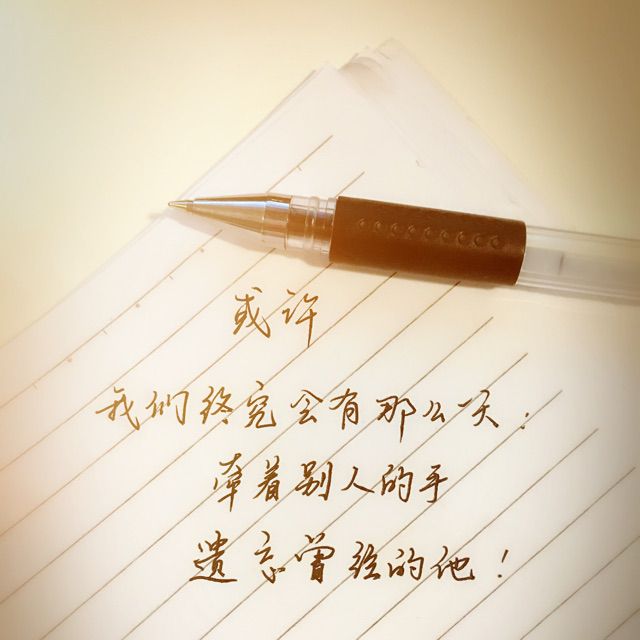 或许
我们终究会有那么一天：
牵着别人的手
遗忘曾经的他！